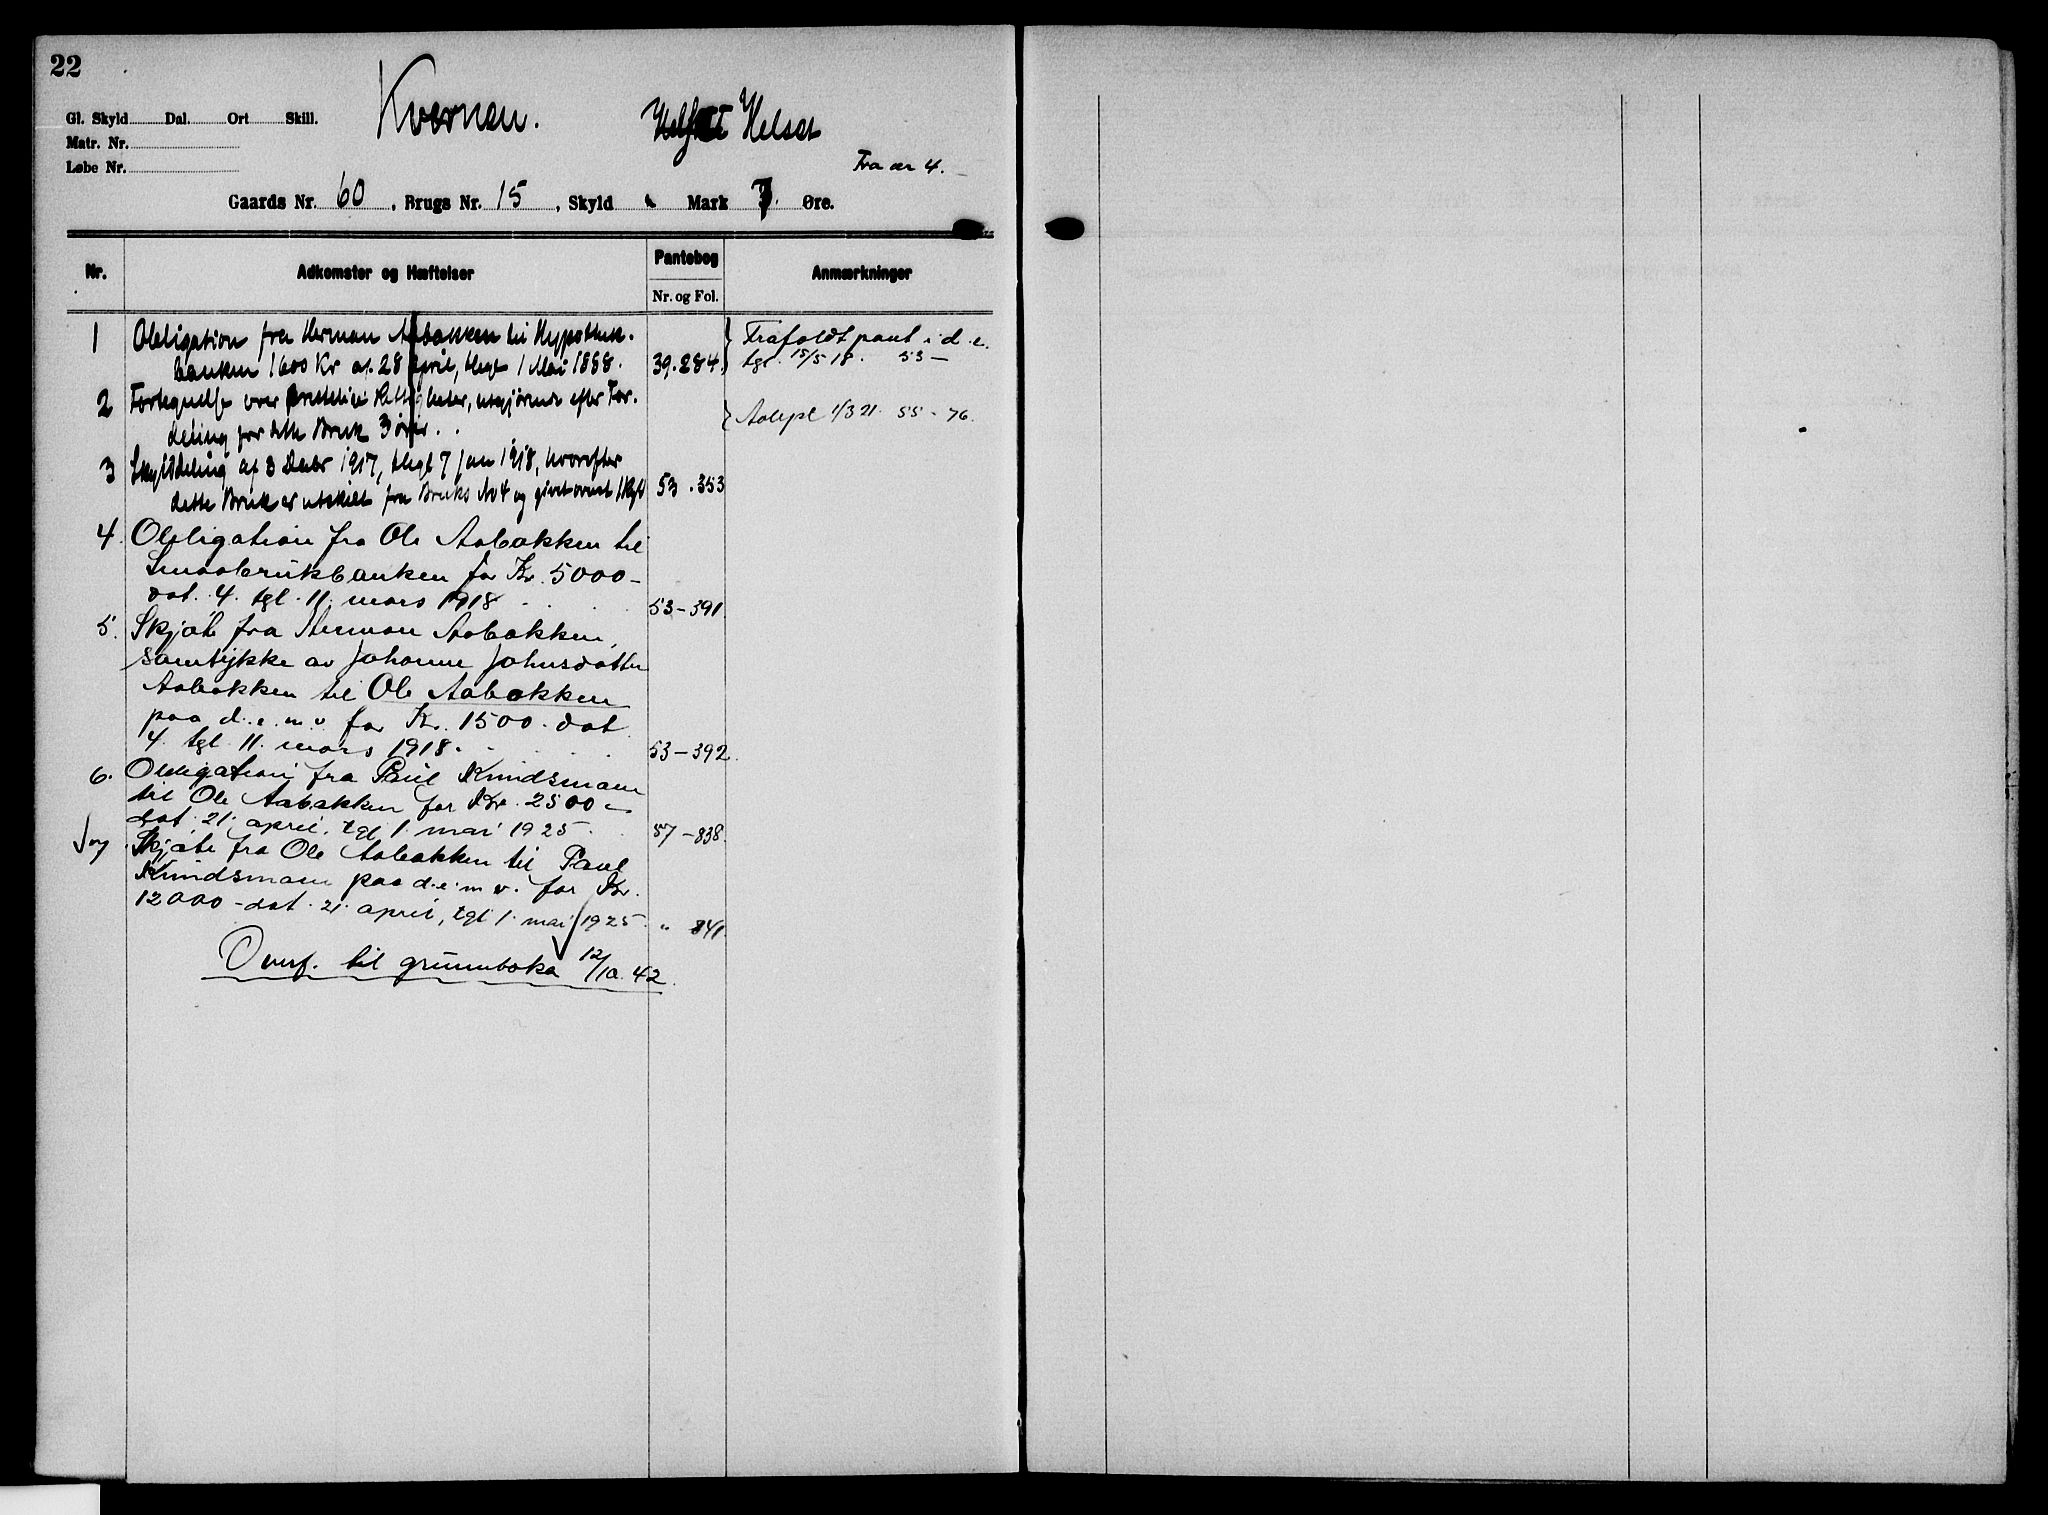 22
Gl. Skyld Dal. Ort Skill.
Kvernen.
Helset
Matr. Nr.
Løbe Nr.
Fra nr 4.
Gaards Nr. 60, Brugs Nr. 15, Skyld Mark 7. Øre.
Nr.
Adkomster og Hæftelser
Pantebog
Nr. og Fol.
Anmærkninger
1 Obligation fra Herman Aabakken til Hypothek-
banken 1600 Kr af 28 april, thlgt 1 Mai 1888. 39.284.
Frafaldt pant i d.e.
tgl. 15/5 18. 53 —
2 Fortegnelse over Rettigheter, utgjørende efter For-
deling for dette Bruk 3 ører.
1/3 21. 55 - 76.
3 Skylddeling af 3 Decbr 1917, thlgt 7 jan 1918, hvorefter
dette Bruk er utskilt fra Bruks No 4 og givet 53.353
4. Obligation fra Ole Aabakken til
Smaabrukbanken for Kr. 5000 -
dat. 4. tgl. 11. mars 1918 53 - 391
5. Skjøte fra Herman Aabakken,
samtykke av Johanne Johnsdatter
Aabakken til Ole Aabakken
paa d.e.m.v for Kr. 1500. dat
4. tgl. 11. mars 1918. 53 - 392.
6. Obligation fra Paul Knudsmoen
til Ole Aabakken for Kr. 2500 -
dat. 21. april, tgl 1. mai 1925. 57 - 838.
7 Skjøte fra Ole Aabakken til Paul
Knudsmoen paa d.e.m.v. for Kr.
12000 - dat. 21. april, tgl 1. mai 1925 " 841.
Overf. til grunnboka 12/10. 42.